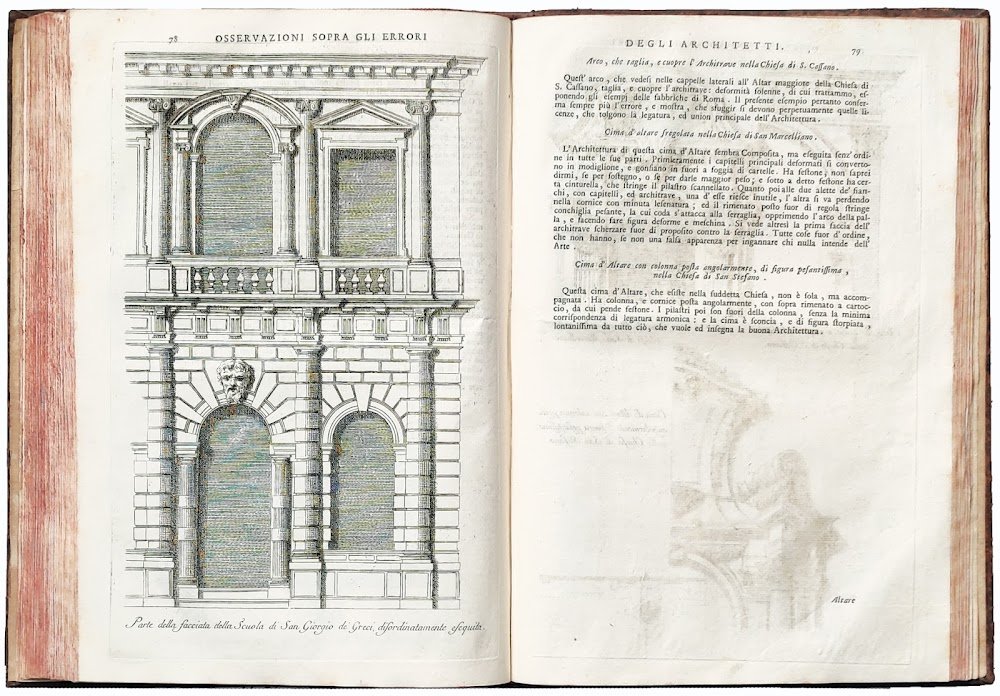 78
OSSERVAZIONI SOPRA GLI ERRORI
Parte della facciata della Scuola di San Giorgio de Greci, disordinatamente eseguita.
DEGLI ARCHITETTI.
79
Arco, che taglia, e cuopre l'Architrave nella Chiesa di S. Cassano.
Quest' arco, che vedesi nelle cappelle laterali all' Altar maggiore della Chiesa di
S. Cassano, taglia, e cuopre l'architrave: deformità solenne, di cui trattammo, es-
ponendo gli esempj delle fabbriche di Roma. Il presente esempio pertanto confer-
ma sempre più l'errore, e mostra, che sfuggir si devono perpetuamente quelle li-
cenze, che tolgono la legatura, ed union principale dell'Architettura.
Cima d'altare sregolata nella Chiesa di San Marcelliano.
L'Architettura di questa cima d'Altare sembra Composita, ma eseguita senz' ordi-
ne in tutte le sue parti. Primieramente i capitelli principali deformati si converto-
no in modiglione, e gonfiano in fuori a foggia di cartelle. Ha festone; non saprei
dirmi, se per sostegno, o se per darle maggior peso; e sotto a detto festone ha cer-
ta cinturella, che stringe il pilastro scannellato. Quanto poi alle due alette de' fian-
chi, con capitelli, ed architrave, una d' esse riesce inutile, l'altra si va perdendo
nella cornice con minuta lesenatura; ed il rimenato posto fuor di regola stringe
conchiglia pesante, la cui coda s'attacca alla serraglia, opprimendo l'arco della pal-
la, e facendo fare figura deforme e meschina. Si vede altresì la prima faccia dell'
architrave scherzare fuor di proposito contro la serraglia. Tutte cose fuor d'ordine,
che non hanno, se non una falsa apparenza per ingannare chi nulla intende dell'
Arte.
Cima d'Altare con colonna posta angolarmente, di figura pesantissima,
nella Chiesa di San Stefano.
Questa cima d'Altare, che esiste nella suddetta Chiesa, non è sola, ma accom-
pagnata. Ha colonna, e cornice posta angolarmente, con sopra rimenato a cartoc-
cio, da cui pende festone. I pilastri poi son fuori della colonna, senza la minima
corrispondenza di legatura armonica; e la cima è sconcia, e di figura storpiata,
lontanissima da tutto ciò, che vuole ed insegna la buona Architettura.
Altare